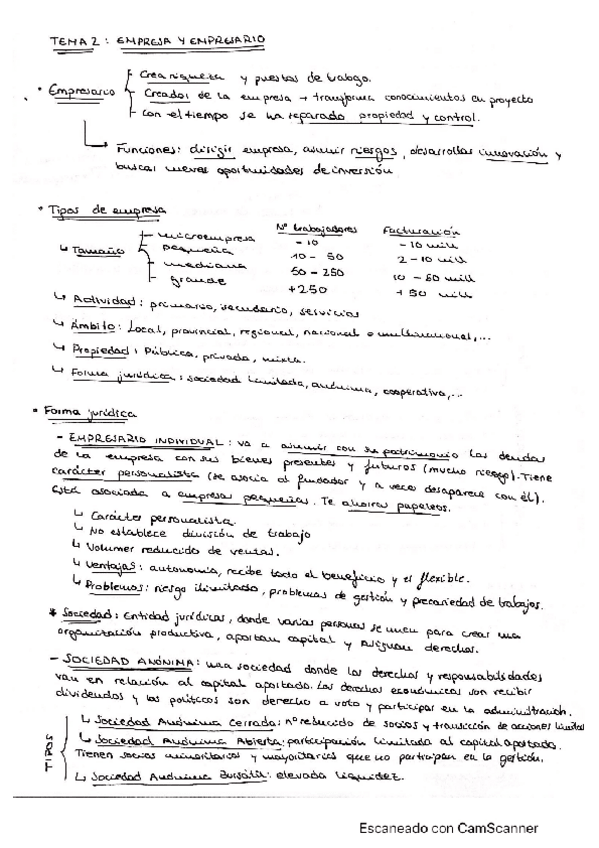 TEMA 2: EMPRESA Y EMPRESARIO
Crea riqueza y puestos de trabajo.
• Empresario Creador de la empresa → transforma conocimientos en proyecto
Con el tiempo se ha separado propiedad y control.
Funciones: dirigir empresa, asumir riesgos, desarrollar innovación y
buscar nuevas oportunidades de inversión
• Tipos de empresa
Nº trabajadores Facturación
microempresa - 10 - 10 mill
↳ Tamaño pequeña 10 - 50 2 - 10 mill
mediana 50 - 250 10 - 50 mill
grande +250 + 50 mill
↳ Actividad: primario, secundario, servicios
↳ Ámbito: Local, provincial, regional, nacional o multinacional,...
↳ Propiedad: Pública, privada, mixta.
↳ Forma jurídica: sociedad limitada, anónima, cooperativa,...
• Forma jurídica
- EMPRESARIO INDIVIDUAL: va a asumir con su patrimonio las deudas
de la empresa con sus bienes presentes y futuros (mucho riesgo). Tiene
carácter personalista (se asocia al fundador y a veces desaparece con él).
Está asociada a empresas pequeñas. Te ahorras papeleos.
↳ Carácter personalista.
↳ No establece división de trabajo
↳ Volumen reducido de ventas.
↳ Ventajas: autonomía, recibe todo el beneficio y es flexible.
↳ Problemas: riesgo ilimitado, problemas de gestión y precariedad de trabajos.
* Sociedad: Entidad jurídicas, donde varias personas se unen para crear una
organización productiva, aportan capital y asignan derechos.
- SOCIEDAD ANÓNIMA: una sociedad donde los derechos y responsabilidades
van en relación al capital aportado. Los derechos económicos son recibir
dividendos y los políticos son derecho a voto y participar en la administración.
TIPOS
↳ Sociedad Anónima Cerrada: nº reducido de socios y de acciones limitada
↳ Sociedad Anónima Abierta: participación limitada al capital aportado.
Tienen socios minoritarios y mayoritarios que no participan en la gestión.
↳ Sociedad Anónima Bursátil: elevada liquidez.
Escaneado con CamScanner